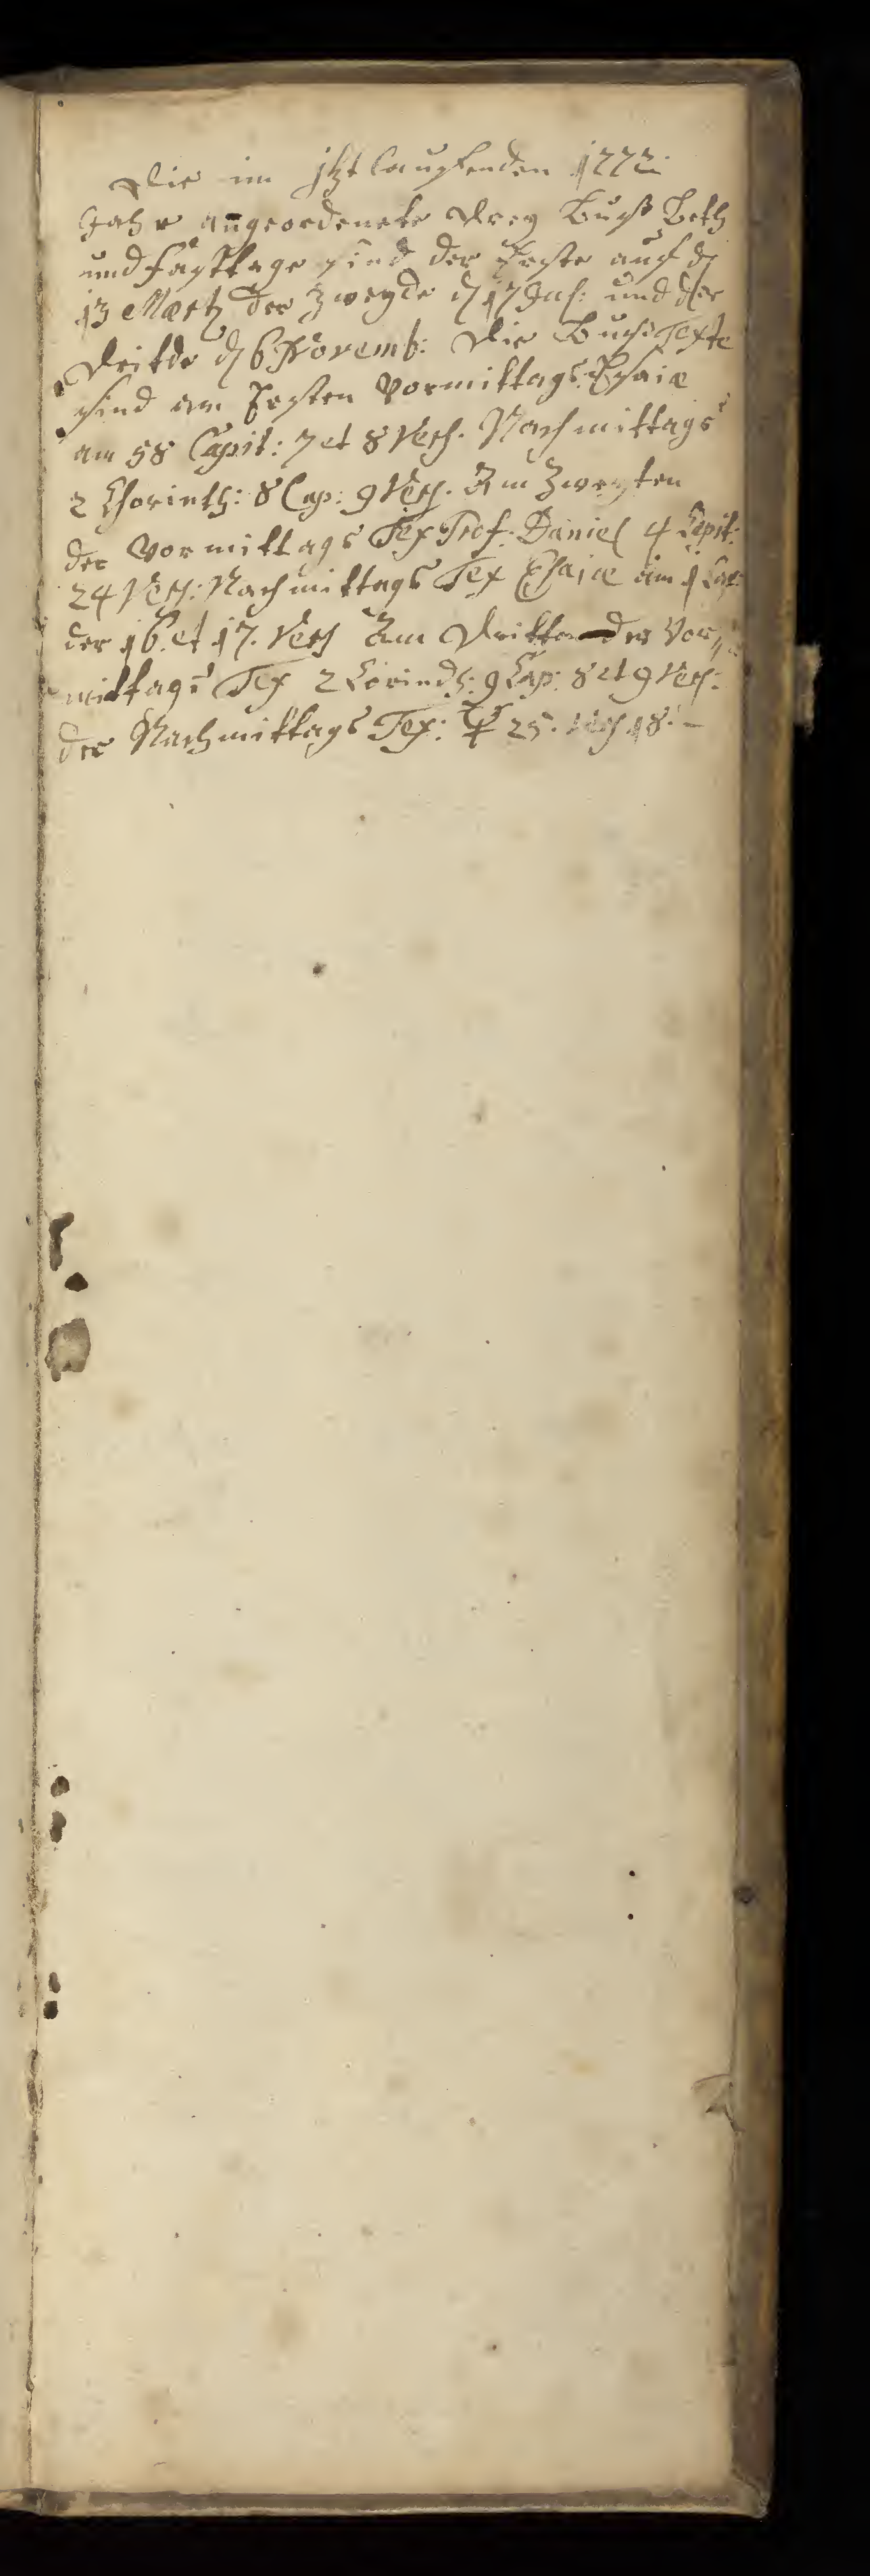 Die im jtzt lauffenden 1772.
Jahr angeordenete Drey Buß Beth
und Fasttage sind der Erste auf d
13 Martz der Zweyde d 17 Jul: und der
Dritde d 6 Novemb: Die Buß Texte
sind am Ersten Vormittags Esaiæ
am 58 Capit: 7 et 8 Vers. Nachmittags
2 Chorinth: 8 Cap: 9 Vers. Am Zweyten
der Vormittags Tex Prof. Daniel 4 Capit:
24 Vers: Nachmittags Tex Esaiæ am 1 Cap:
der 16. et 17. Vers Am Dritten der Vor„
mittags Tex 2 Corindh: 9 Cap: 8 et 9 Vers:
der Nachmittags Tex: Ps 25. Vers 18. –